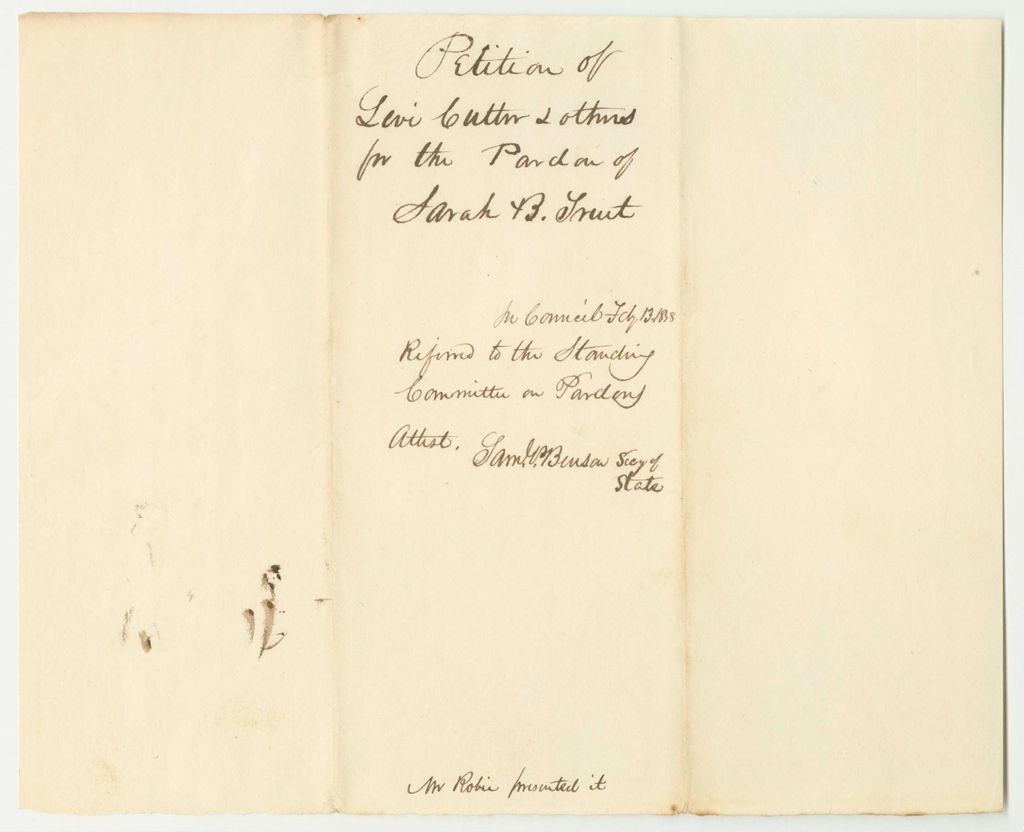 Petition of
Levi Cutter & others
for the Pardon of
Sarah B. Trust
In Council Feby 13. 1838
Referred to the Standing
Committee on Pardons
Attest. Saml. P. Benson Secy of
State
Mr Robie presented it